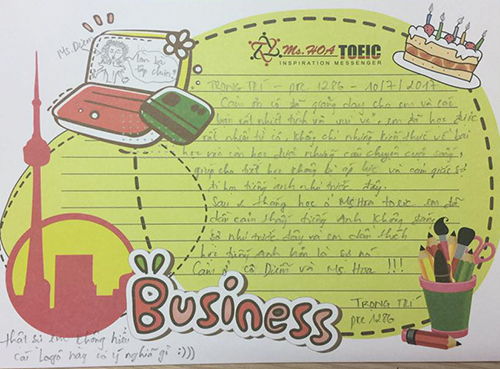 Ms. Diễm
Ms. HOA TOEIC
INSPIRATION MESSENGER
TRỌNG TRÍ – pre 1286 – 10/7/2017
Cảm ơn cô đã giảng dạy cho em và các
bạn rất nhiệt tình và vui vẻ, em đã học được
rất nhiều từ cô, không chỉ những kiến thức về bài
học mà còn học được những câu chuyện cuộc sống,
giúp cho tiết học không bị áp lực và cảm giác sợ
đi học tiếng anh như trước đây.
Sau 2 tháng học ở Ms Hoa toeic em đã
dần cảm thấy tiếng Anh không đáng
sợ như trước đây và em dần thích
học tiếng Anh hơn là sợ nó
Cảm ơn cô Diễm và Ms Hoa !!!
TRỌNG TRÍ
pre 1286
Business
thật sự em không hiểu
cái logo này có ý nghĩa gì :)))